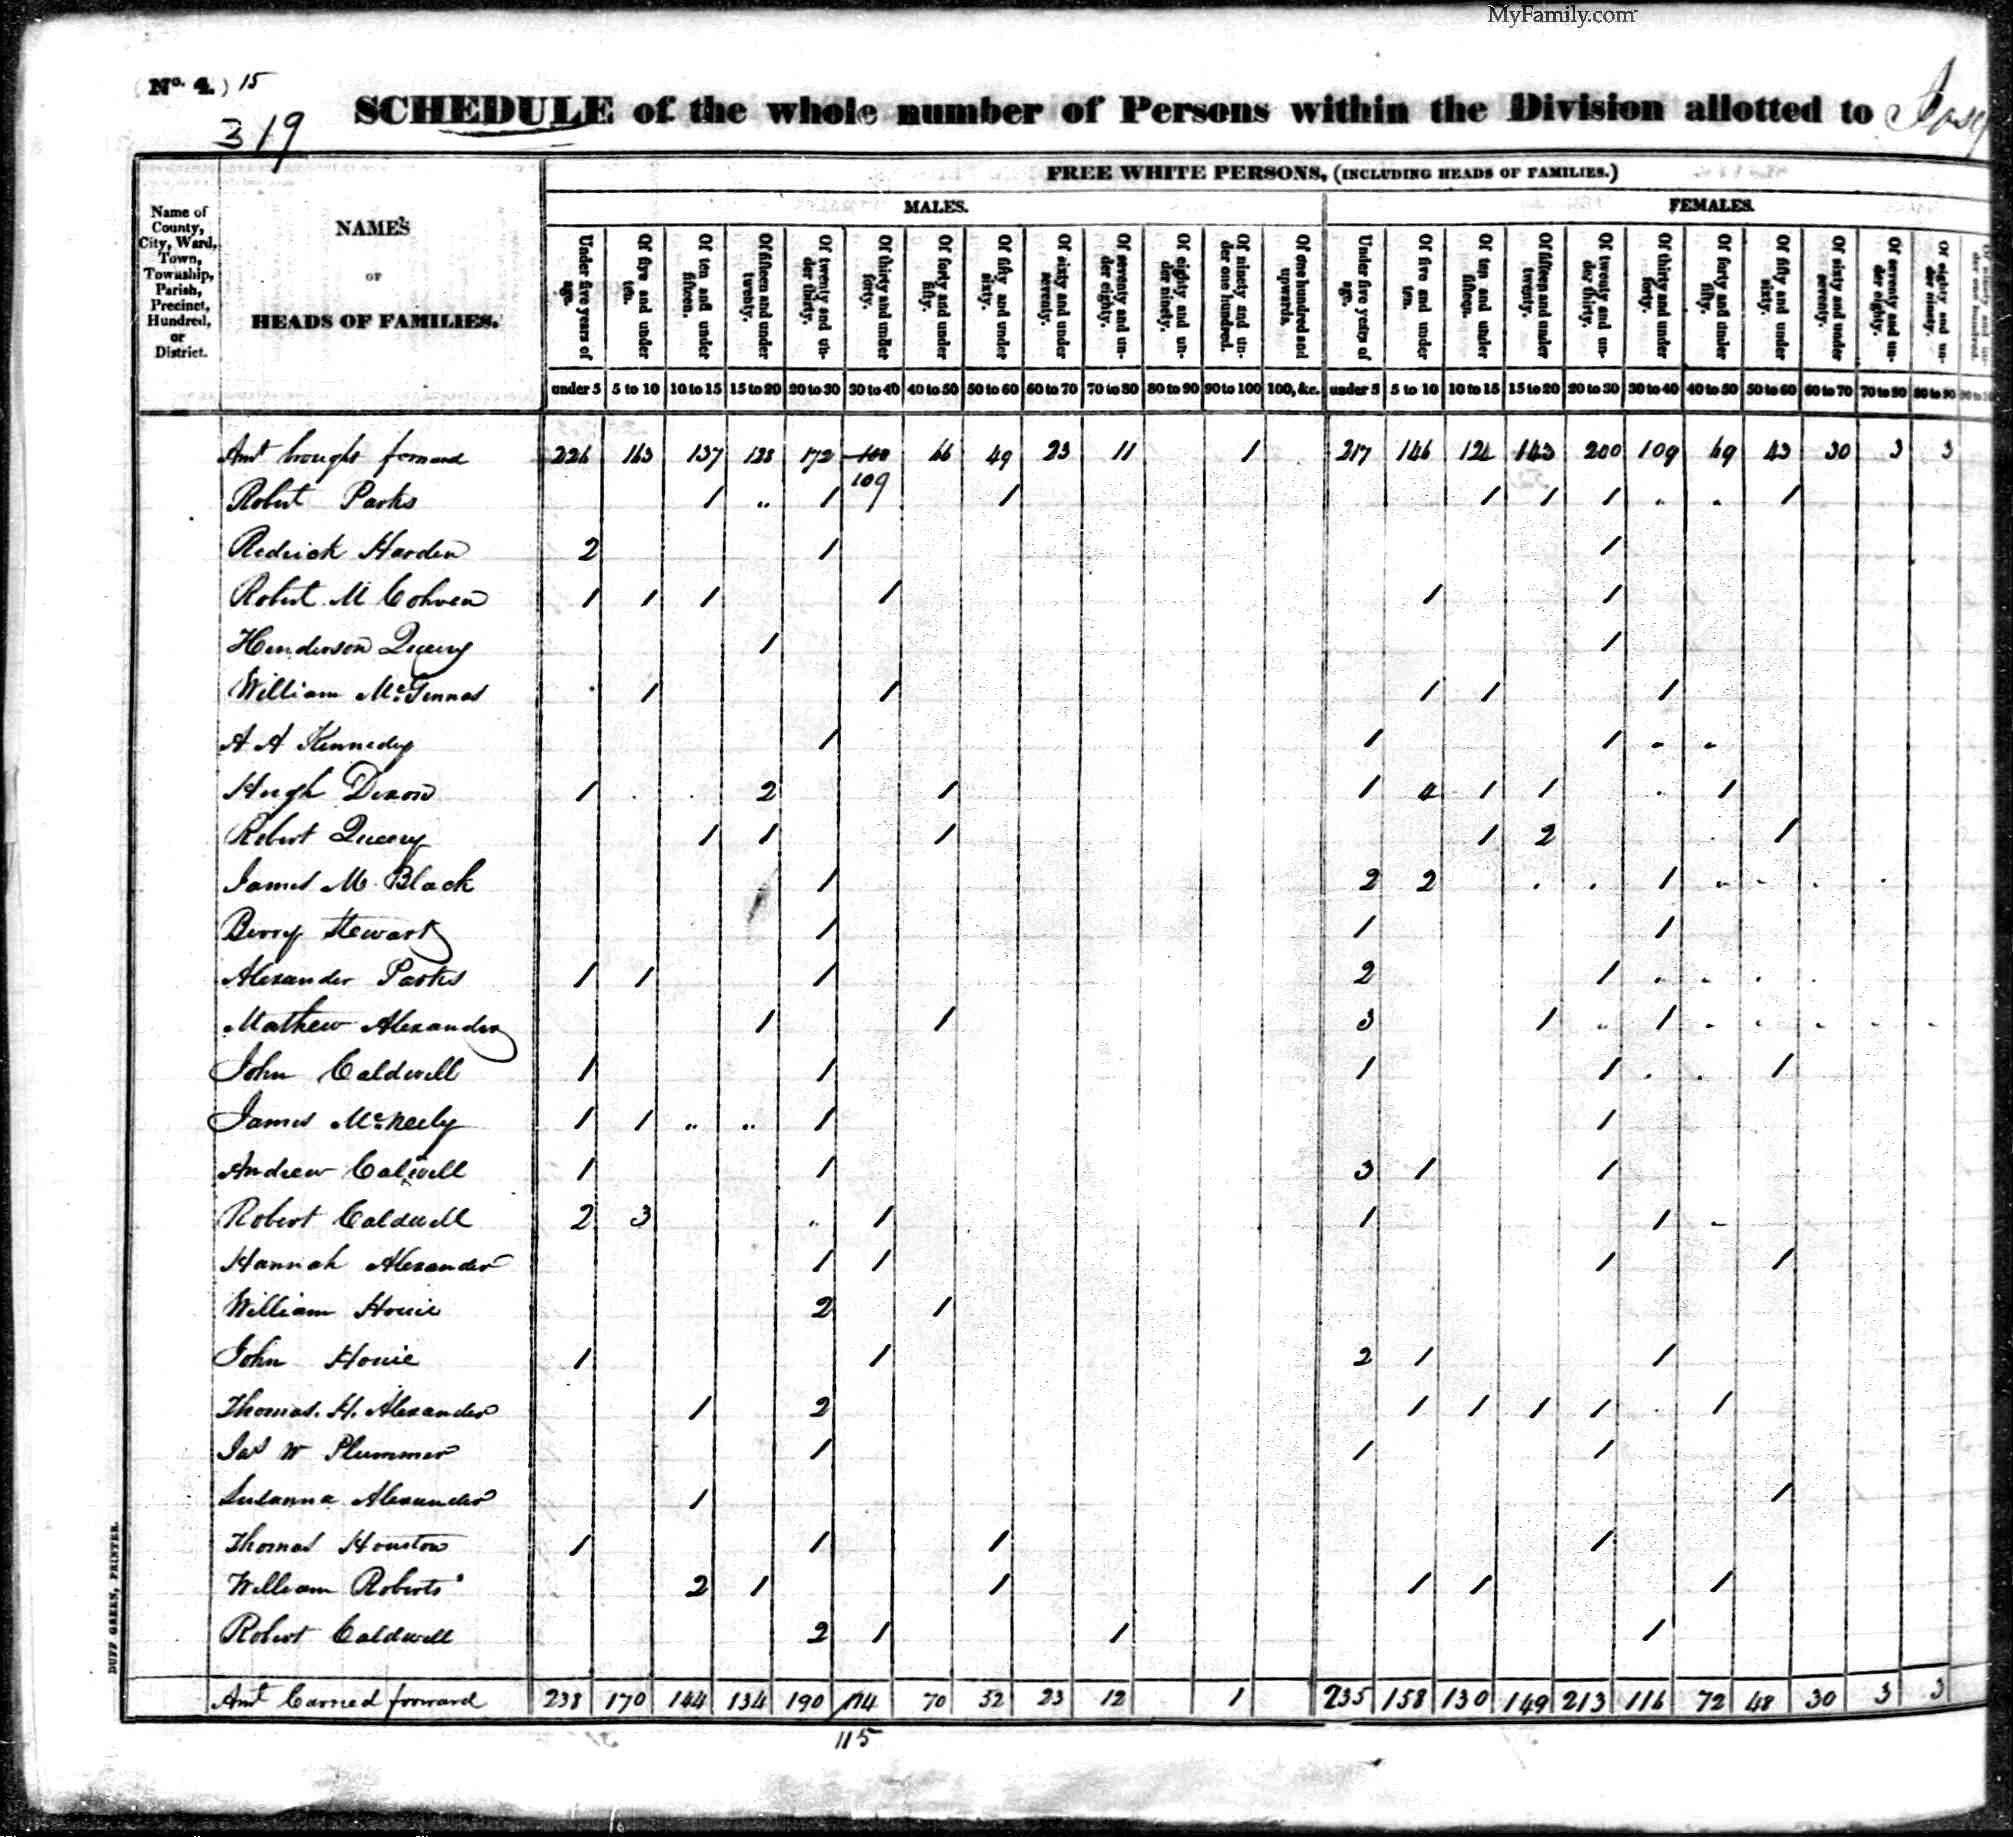 MyFamily.com
(No. 4.) 15
319
SCHEDULE of the whole number of Persons within the Division allotted to
FREE WHITE PERSONS, (INCLUDING HEADS OF FAMILIES.)
MALES. FEMALES.
Name of County, City, Ward, Town, Township, Parish, Precinct, Hundred, or District.
NAMES
OF
HEADS OF FAMILIES.
Under five years of age. Of five and under ten. Of ten and under fifteen. Of fifteen and under twenty. Of twenty and under thirty. Of thirty and under forty. Of forty and under fifty. Of fifty and under sixty. Of sixty and under seventy. Of seventy and under eighty. Of eighty and under ninety. Of ninety and under one hundred. Of one hundred and upwards. Under five years of age. Of five and under ten. Of ten and under fifteen. Of fifteen and under twenty. Of twenty and under thirty. Of thirty and under forty. Of forty and under fifty. Of fifty and under sixty. Of sixty and under seventy. Of seventy and under eighty. Of eighty and under ninety.
under 5 5 to 10 10 to 15 15 to 20 20 to 30 30 to 40 40 to 50 50 to 60 60 to 70 70 to 80 80 to 90 90 to 100 100, &c. under 5 5 to 10 10 to 15 15 to 20 20 to 30 30 to 40 40 to 50 50 to 60 60 to 70 70 to 80 80 to 90
Amt brought forward 226 163 137 128 172 108 66 49 23 11 1 217 146 124 143 200 109 69 43 30 3 3
109
Robert Parks 1 1 1 1 1 1 1
Redrick Harden 2 1 1
Robert M Cohren 1 1 1 1 1 1
Henderson Queery 1 1
William McGinnas 1 1 1 1 1
A A Kennedy 1 1 1
Hugh Dixon 1 2 1 1 4 1 1 1
Robert Queery 1 1 1 1 2 1
James M Black 1 2 2 1
Berry Stewart 1 1 1
Alexander Parks 1 1 1 2 1
Mathew Alexander 1 1 3 1 1
John Caldwell 1 1 1 1 1
James McNeely 1 1 1 1
Andrew Calwell 1 1 3 1 1
Robert Caldwell 2 3 1 1 1
Hannah Alexander 1 1 1 1
William Houie 2 1
John Houie 1 1 2 1 1
Thomas. H. Alexander 1 2 1 1 1 1 1
Jas W Plummer 1 1 1
Susanna Alexander 1 1
Thomas Houston 1 1 1 1
William Roberts 2 1 1 1 1 1
Robert Caldwell 2 1 1 1
Amt Carried forward 238 170 144 134 190 114 70 52 23 12 1 235 158 130 149 213 116 72 48 30 3 3
115
DUFF GREEN, PRINTER.